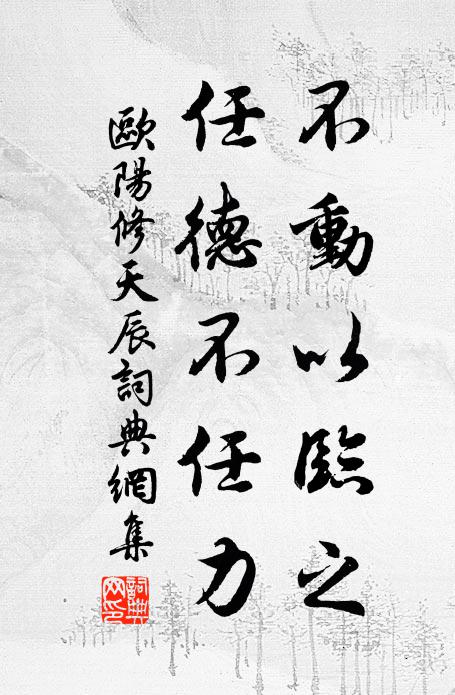 不動以臨之
任德不任力
歐陽修天辰詞典網集
詞典網印